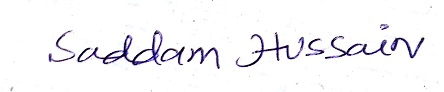 Saddam Hussain